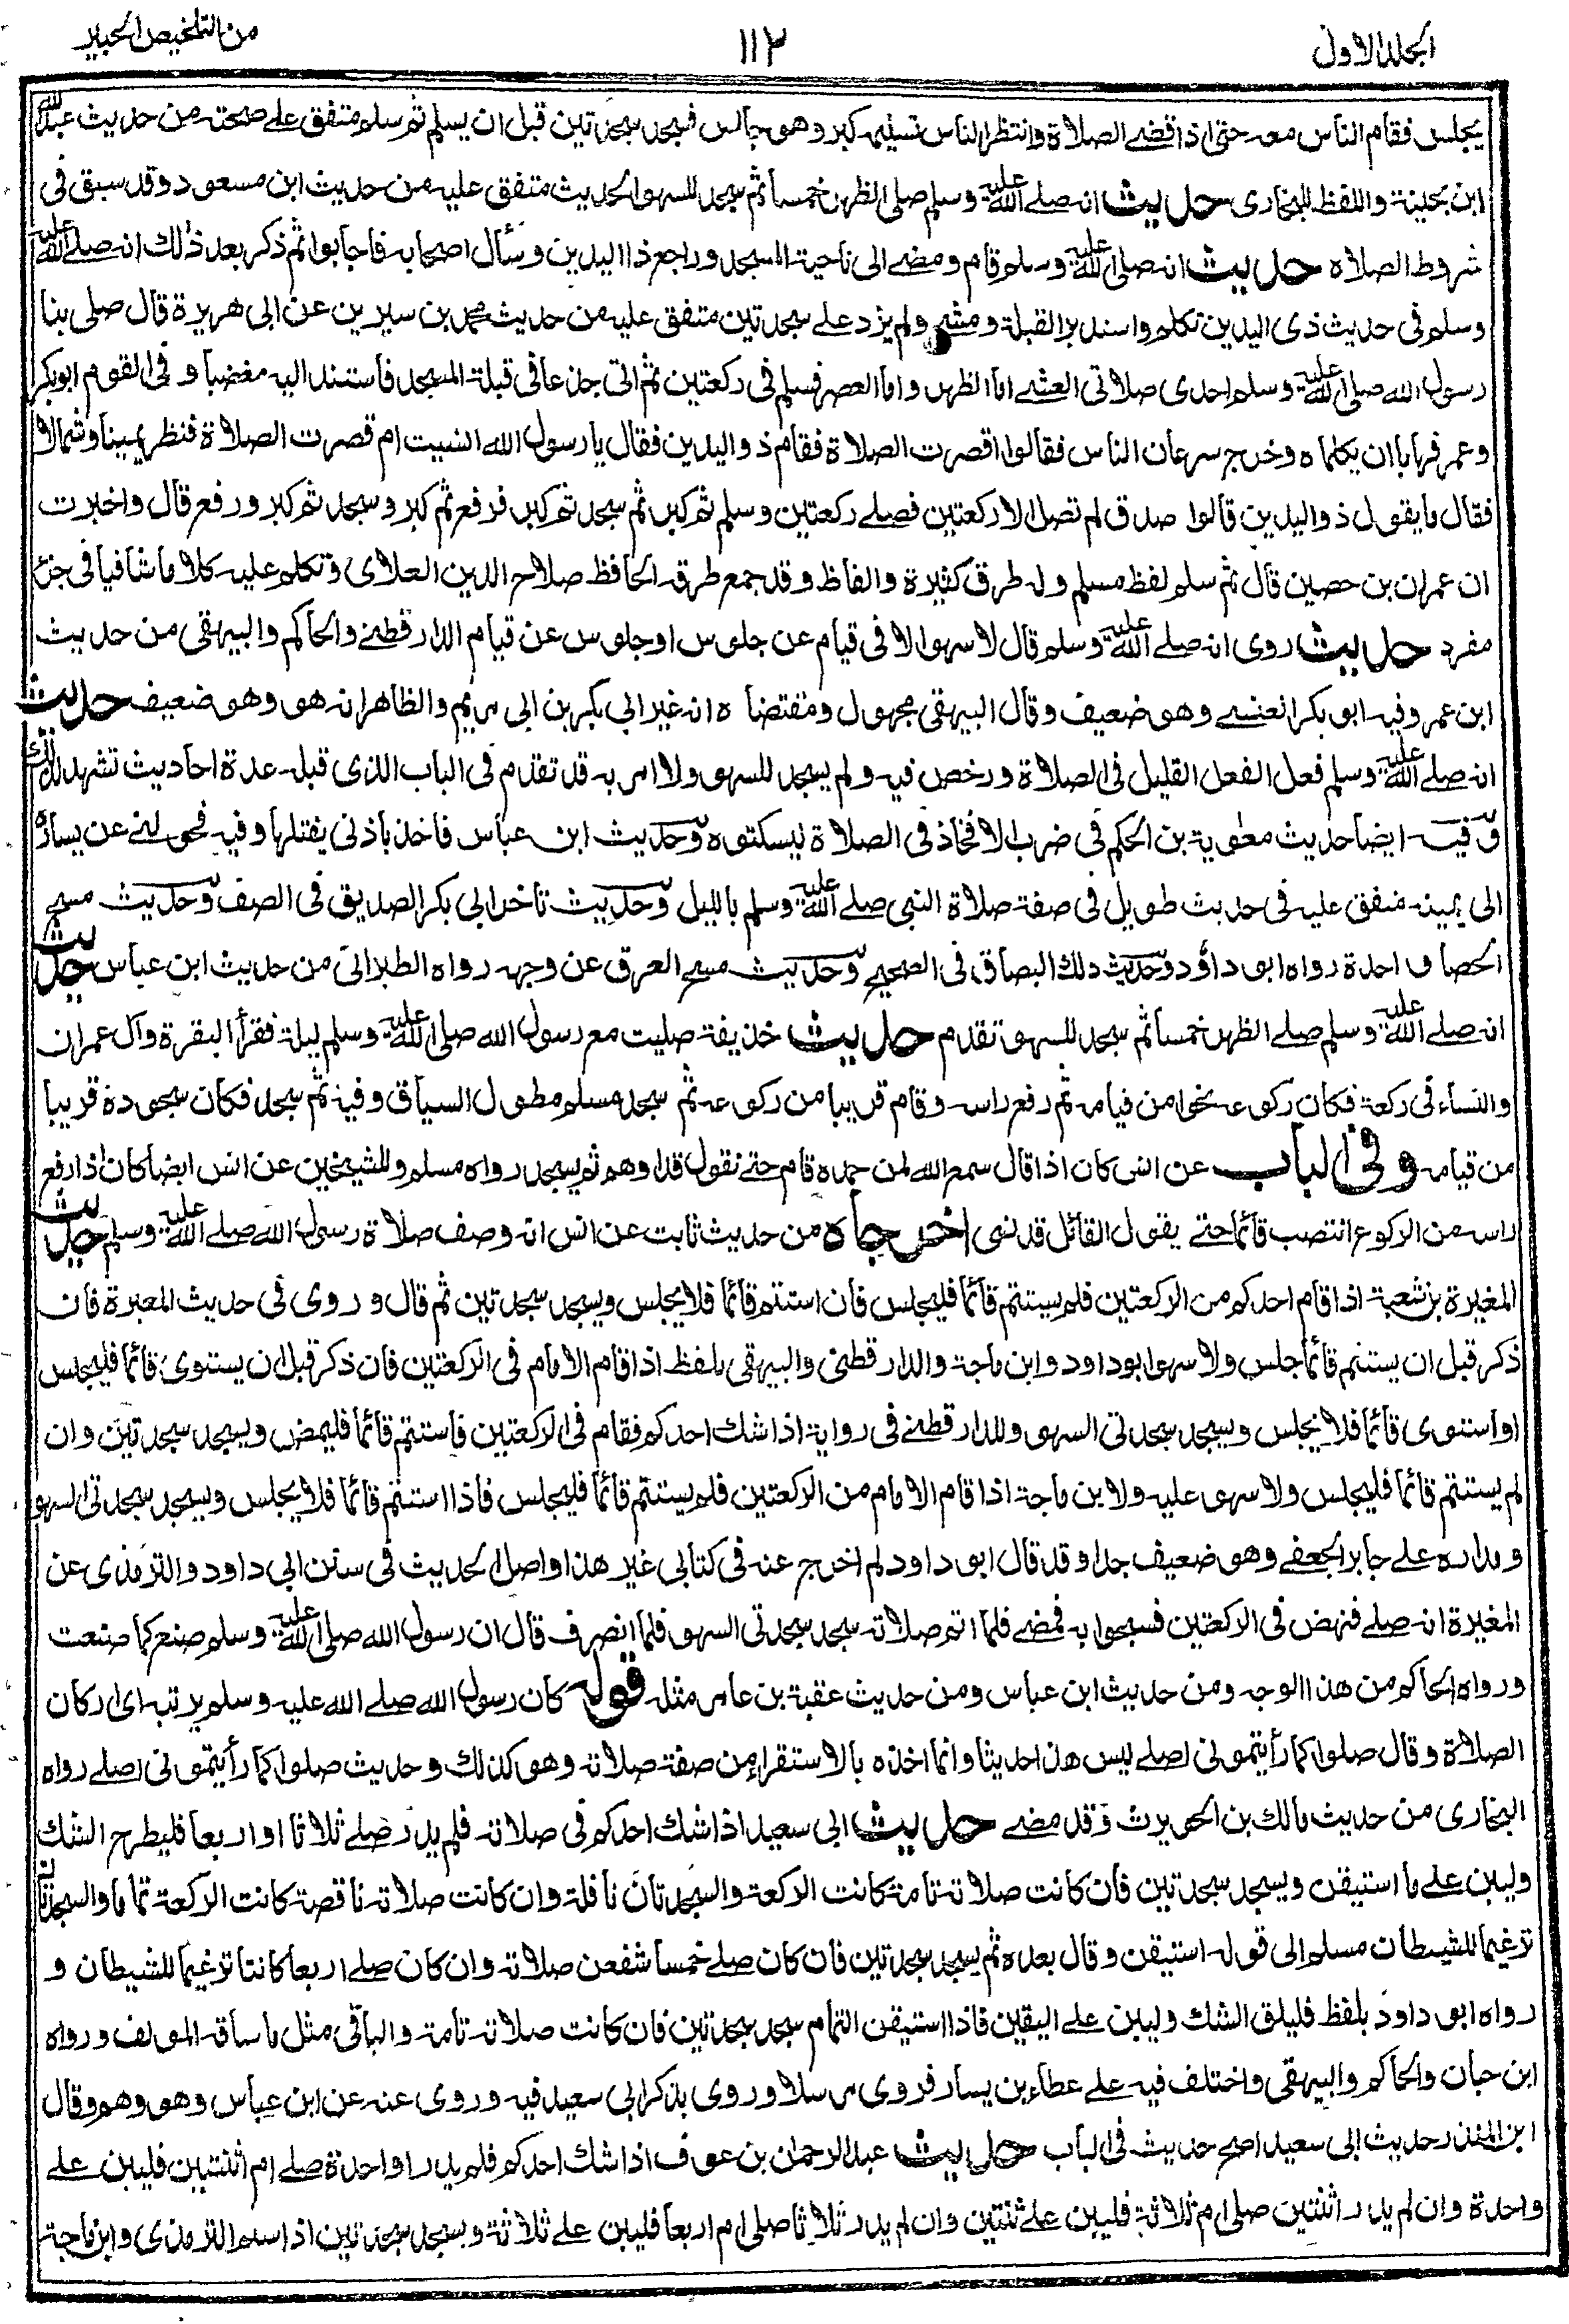 الجلد الاول ١١٢ من التلخيص الحبير
يجلس فقام الناس معه حتى اذا قضى الصلاة وانتظر الناس تسليمه كبر وهو جالس فسجد سجدتين قبل ان يسلم ثم سلم متفق على صحته من حديث عبد الله
ابن بحينة واللفظ للبخاري حديث انه صلى الله عليه وسلم صلى الظهر خمسا ثم سجد للسهو الحديث متفق عليه من حديث ابن مسعود وقد سبق في
شروط الصلاة حديث انه صلى الله عليه وسلم قام ومضى الى ناحية المسجد وراجع ذا اليدين وسأل اصحابه فاجابوا ثم ذكر بعد ذلك انه صلى الله عليه
وسلم في حديث ذى اليدين تكلم واستدبر القبلة ومشى ولم يزد على سجدتين متفق عليه من حديث محمد بن سيرين عن ابى هريرة قال صلى بنا
رسول الله صلى الله عليه وسلم احدى صلاتي العشى اما الظهر واما العصر فسلم في ركعتين ثم اتى جذعا في قبلة المسجد فاستند اليه مغضبا وفي القوم ابوبكر
وعمر فهابا ان يكلماه وخرج سرعان الناس فقالوا اقصرت الصلاة فقام ذو اليدين فقال يا رسول الله انسيت ام قصرت الصلاة فنظر يمينا وشمالا
فقال ما يقول ذو اليدين قالوا صدق لم تصل الا ركعتين فصلى ركعتين وسلم ثم كبر ثم سجد ثم كبر فرفع ثم كبر وسجد ثم كبر ورفع قال واخبرت
ان عمران بن حصين قال ثم سلم لفظ مسلم وله طرق كثيرة والفاظ وقد جمع طرقه الحافظ صلاح الدين العلاى وتكلم عليه كلاما شافيا في جزء
مفرد حديث روى انه صلى الله عليه وسلم قال لا سهو الا في قيام عن جلوس او جلوس عن قيام الدارقطنى والحاكم والبيهقى من حديث
ابن عمر وفيه ابو بكر العنسى وهو ضعيف وقال البيهقى مجهول ومقتضاه انه غير ابى بكر بن ابى مريم والظاهر انه هو وهو ضعيف حديث
انه صلى الله عليه وسلم فعل الفعل القليل في الصلاة ورخص فيه ولم يسجد للسهو ولا امر به قد تقدم في الباب الذى قبله عدة احاديث تشهد لذلك
وفيه ايضا حديث معوية بن الحكم في ضرب الافخاذ في الصلاة ليسكتوه وحديث ابن عباس فاخذ باذنى يفتلها وفيه فحولنى عن يساره
الى يمينه متفق عليه في حديث طويل في صفة صلاة النبي صلى الله عليه وسلم بالليل وحديث تاخر ابى بكر الصديق في الصف وحديث مسح
الحصا واحدة رواه ابو داؤد وحديث دلك البصاق في الصحيح وحديث مسح العرق عن وجهه رواه الطبراني من حديث ابن عباس حديث
انه صلى الله عليه وسلم صلى الظهر خمسا ثم سجد للسهو تقدم حديث حذيفة صليت مع رسول الله صلى الله عليه وسلم ليلة فقرأ البقرة وآل عمران
والنساء في ركعة فكان ركوعه نحوا من قيامه ثم رفع راسه وقام قريبا من ركوعه ثم سجد مسلم مطول السياق وفيه ثم سجد فكان سجوده قريبا
من قيامه وفي الباب عن انس كان اذا قال سمع الله لمن حمده قام حتى نقول قد اوهم ثم يسجد رواه مسلم وللشيخين عن انس ايضا كان اذا رفع
راسه من الركوع انتصب قائما حتى يقول القائل قد نسى اخرجاه من حديث ثابت عن انس انه وصف صلاة رسول الله صلى الله عليه وسلم حديث
المغيرة بن شعبة اذا قام احدكم من الركعتين فلم يستتم قائما فليجلس فان استتم قائما فلا يجلس ويسجد سجدتين ثم قال وروى في حديث المغيرة فان
ذكر قبل ان يستتم قائما جلس ولا سهو ابوداود وابن ماجة والدارقطنى والبيهقى بلفظ اذا قام الامام في الركعتين فان ذكر قبل ان يستوى قائما فليجلس
او استوى قائما فلا يجلس ويسجد سجدتى السهو وللدارقطنى في رواية اذا شك احدكم فقام في الركعتين فاستتم قائما فليمض ويسجد سجدتين وان
لم يستتم قائما فليجلس ولا سهو عليه ولابن ماجة اذا قام الامام من الركعتين فلم يستتم قائما فليجلس فاذا استتم قائما فلا يجلس ويسجد سجدتى السهو
ومداره على جابر الجعفى وهو ضعيف جدا وقد قال ابو داود لم اخرج عنه في كتابى غير هذا واصل الحديث في سنن ابى داود والترمذى عن
المغيرة انه صلى فنهض في الركعتين فسبحوا به فمضى فلما اتم صلاته سجد سجدتى السهو فلما انصرف قال ان رسول الله صلى الله عليه وسلم صنع كما صنعت
ورواه الحاكم من هذا الوجه ومن حديث ابن عباس ومن حديث عقبة بن عامر مثله قوله كان رسول الله صلى الله عليه وسلم يرتب اى اركان
الصلاة وقال صلوا كما رأيتمونى اصلى ليس هذا حديثا وانما اخذه بالاستقراء من صفة صلاته وهو كذلك وحديث صلوا كما رأيتمونى اصلى رواه
البخارى من حديث مالك بن الحويرث وقد مضى حديث ابى سعيد اذا شك احدكم في صلاته فلم يدر صلى ثلاثا او اربعا فليطرح الشك
وليبن على ما استيقن ويسجد سجدتين فان كانت صلاته تامة كانت الركعة والسجدتان نافلة وان كانت صلاته ناقصة كانت الركعة تماما والسجدتان
ترغيما للشيطان مسلم الى قوله استيقن وقال بعده ثم يسجد سجدتين فان كان صلى خمسا شفعن صلاته وان كان صلى اربعا كانتا ترغيما للشيطان و
رواه ابو داود بلفظ فليلق الشك وليبن على اليقين فاذا استيقن التمام سجد سجدتين فان كانت صلاته تامة والباقى مثل ما ساقه المولف ورواه
ابن حبان والحاكم والبيهقى واختلف فيه على عطاء بن يسار فروى مرسلا وروى بذكر ابى سعيد فيه وروى عنه عن ابن عباس وهو وهم وقال
ابن المنذر حديث ابى سعيد اصح حديث في الباب حديث عبد الرحمان بن عوف اذا شك احدكم فلم يدر اواحدة صلى ام اثنتين فليبن على
واحدة وان لم يدر اثنتين صلى ام ثلاثة فليبن على ثنتين وان لم يدر ثلاثا صلى ام اربعا فليبن على ثلاثة ويسجد سجدتين اذا سلم الترمذى وابن ماجة